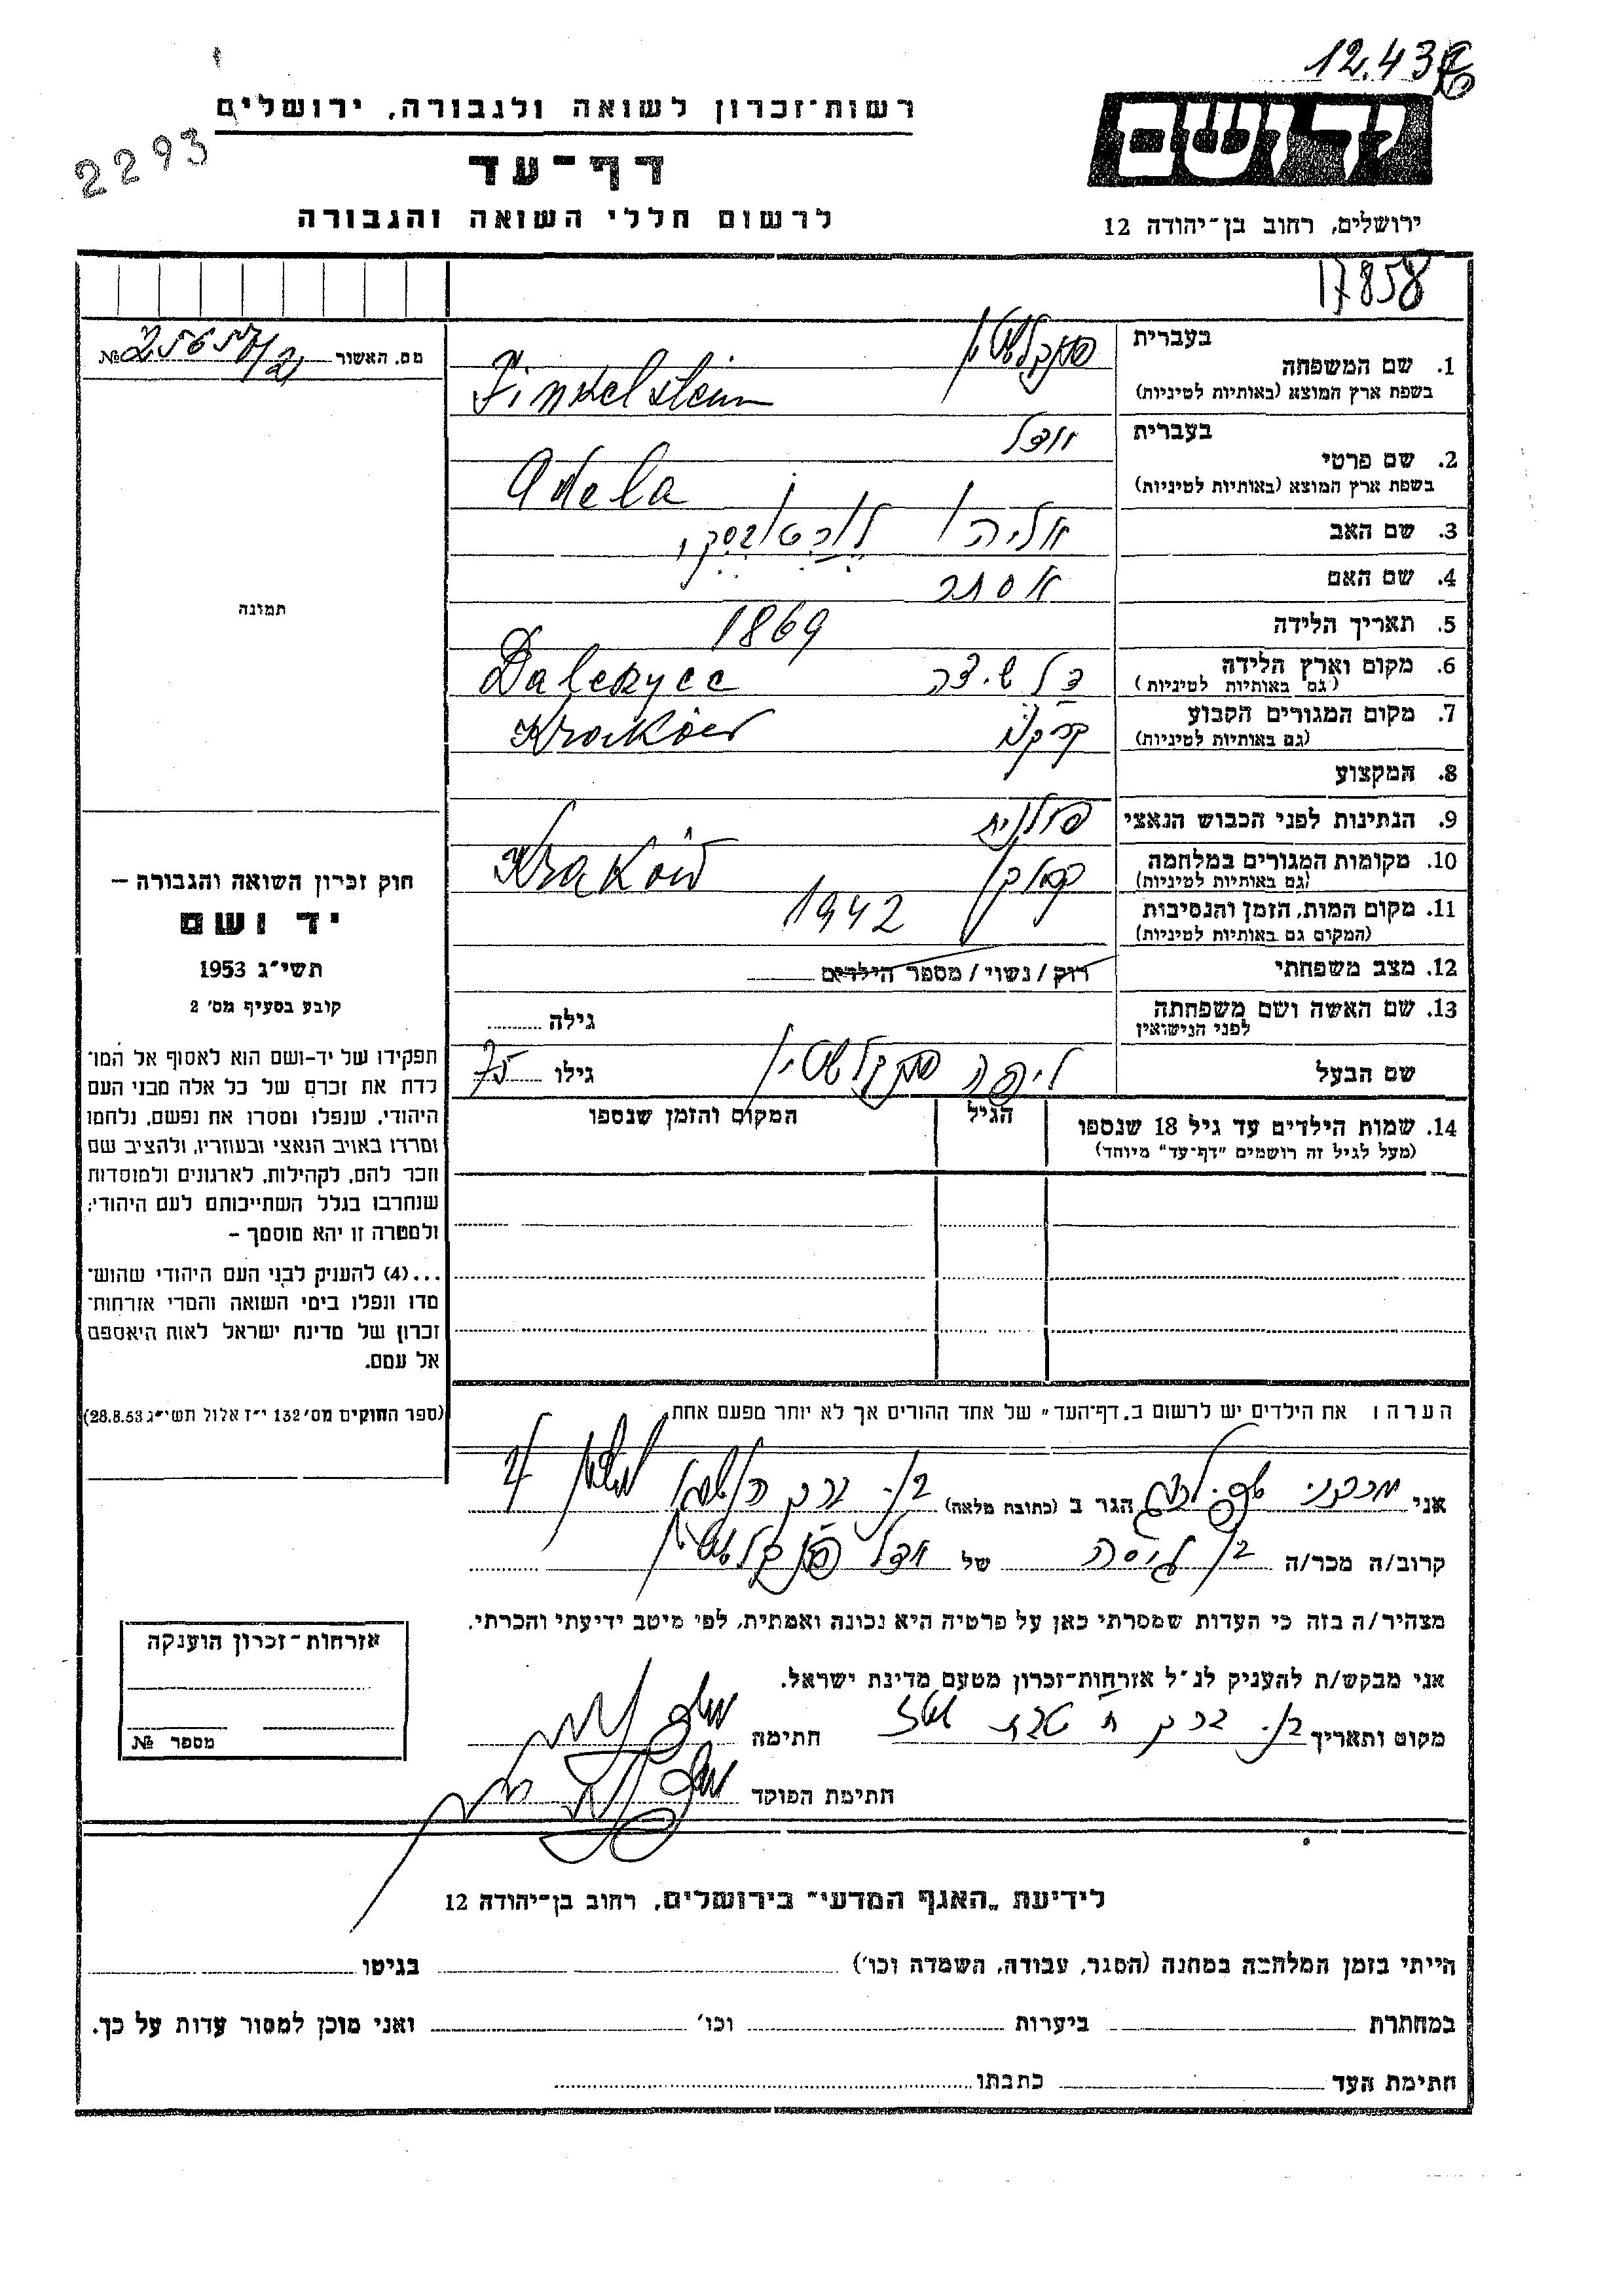 12.43
רשות־זכרון לשואה ולגבורה, ירושלים
2293
דף־עד
לרשום חללי השואה והגבורה
יד ושם
ירושלים, רחוב בן־יהודה 12
17858
מס. האשור №
1. שם המשפחה
בעברית פינקלשטין
בשפת ארץ המוצא (באותיות לטיניות) Finkelstein
2. שם פרטי
בעברית אדל
בשפת ארץ המוצא (באותיות לטיניות) Adela
3. שם האב אליהו
4. שם האם אסתר
5. תאריך הלידה 1869
6. מקום וארץ הלידה
(גם באותיות לטיניות) Daleszyce
7. מקום המגורים הקבוע
(גם באותיות לטיניות) קרקוב Kraków
8. המקצוע
9. הנתינות לפני הכבוש הנאצי פולנית
10. מקומות המגורים במלחמה
(גם באותיות לטיניות) קרקוב Kraków
11. מקום המות, הזמן והנסיבות 1942
(המקום גם באותיות לטיניות)
12. מצב משפחתי רוק / נשוי / מספר הילדים
13. שם האשה ושם משפחתה
לפני הנישואין גילה
שם הבעל ליפה פינקלשטין גילו 75
14. שמות הילדים עד גיל 18 שנספו הגיל המקום והזמן שנספו
(מעל לגיל זה רושמים "דף־עד" מיוחד)
תמונה
חוק זכרון השואה והגבורה –
יד ושם
תשי״ג 1953
קובע בסעיף מס׳ 2
תפקידו של יד-ושם הוא לאסוף אל המו־
לדת את זכרם של כל אלה מבני העם
היהודי, שנפלו ומסרו את נפשם, נלחמו
ומרדו באויב הנאצי ובעוזריו, ולהציב שם
וזכר להם, לקהילות, לארגונים ולמוסדות
שנחרבו בגלל השתייכותם לעם היהודי;
ולמטרה זו יהא מוסמך –
...(4) להעניק לבני העם היהודי שהוש־
מדו ונפלו בימי השואה והמרי אזרחות־
זכרון של מדינת ישראל לאות היאספם
אל עמם.
(ספר החוקים מס׳ 132 י״ז אלול תשי״ג 28.8.53)
הערה: את הילדים יש לרשום ב„דף־העד״ של אחד ההורים אך לא יותר מפעם אחת.
אני מרדכי הגר ב (כתובת מלאה) בני ברק
קרוב/ה מכר/ה בן גיסה של אדל פינקלשטין
מצהיר/ה בזה כי העדות שמסרתי כאן על פרטיה היא נכונה ואמתית, לפי מיטב ידיעתי והכרתי.
אני מבקש/ת להעניק לנ״ל אזרחות־זכרון מטעם מדינת ישראל.
מקום ותאריך בני ברק ח טבת חתימה
חתימת הפוקד
אזרחות־זכרון הוענקה
מספר №
לידיעת „האגף המדעי״ בירושלים, רחוב בן־יהודה 12
הייתי בזמן המלחמה במחנה (הסגר, עבודה, השמדה וכו׳) בגיטו
במחתרת ביערות וכו׳ ואני מוכן למסור עדות על כך.
חתימת העד כתבתו